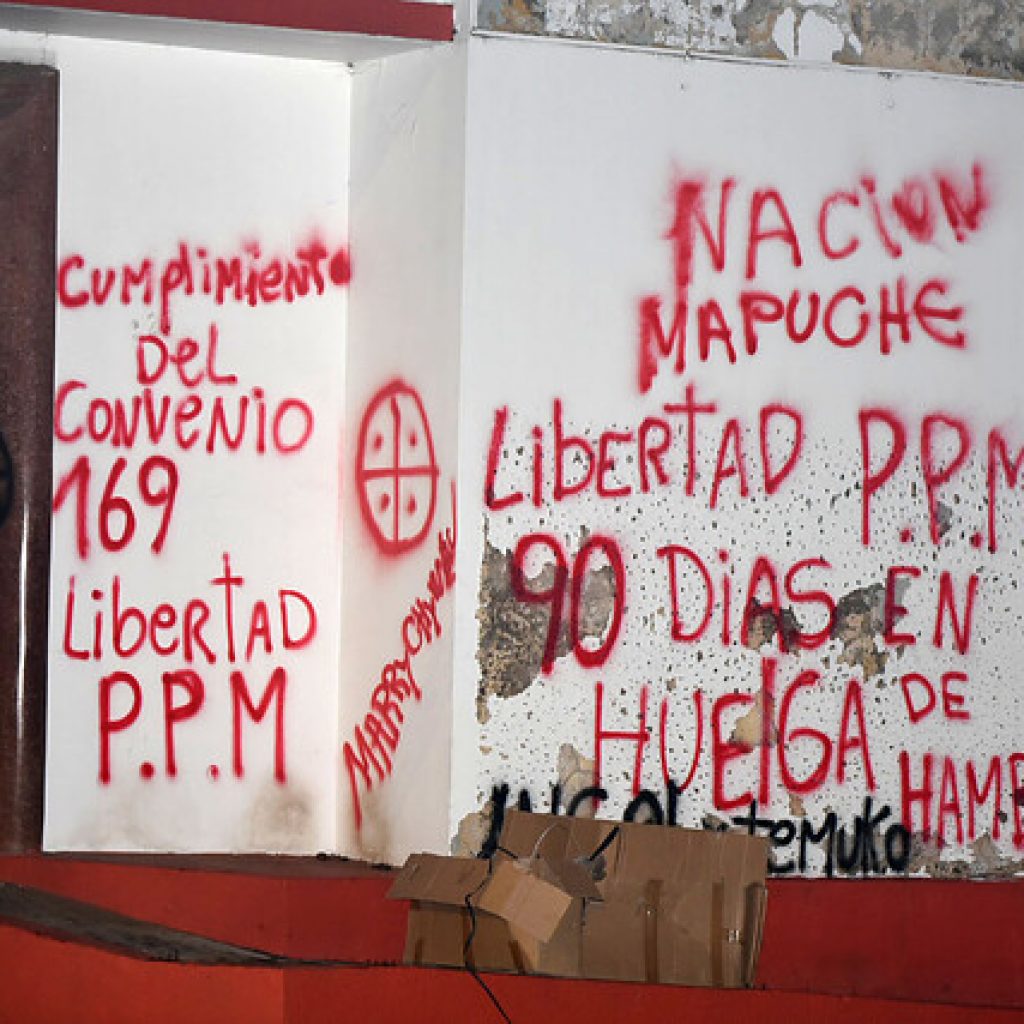 Cumplimiento
Del
Convenio
169
Libertad
P.P.M
MARRICHIWEU
NACION
MAPUCHE
LibERTAD P.P.M
90 DiAS EN
HUElGA DE
HAMB
temuko